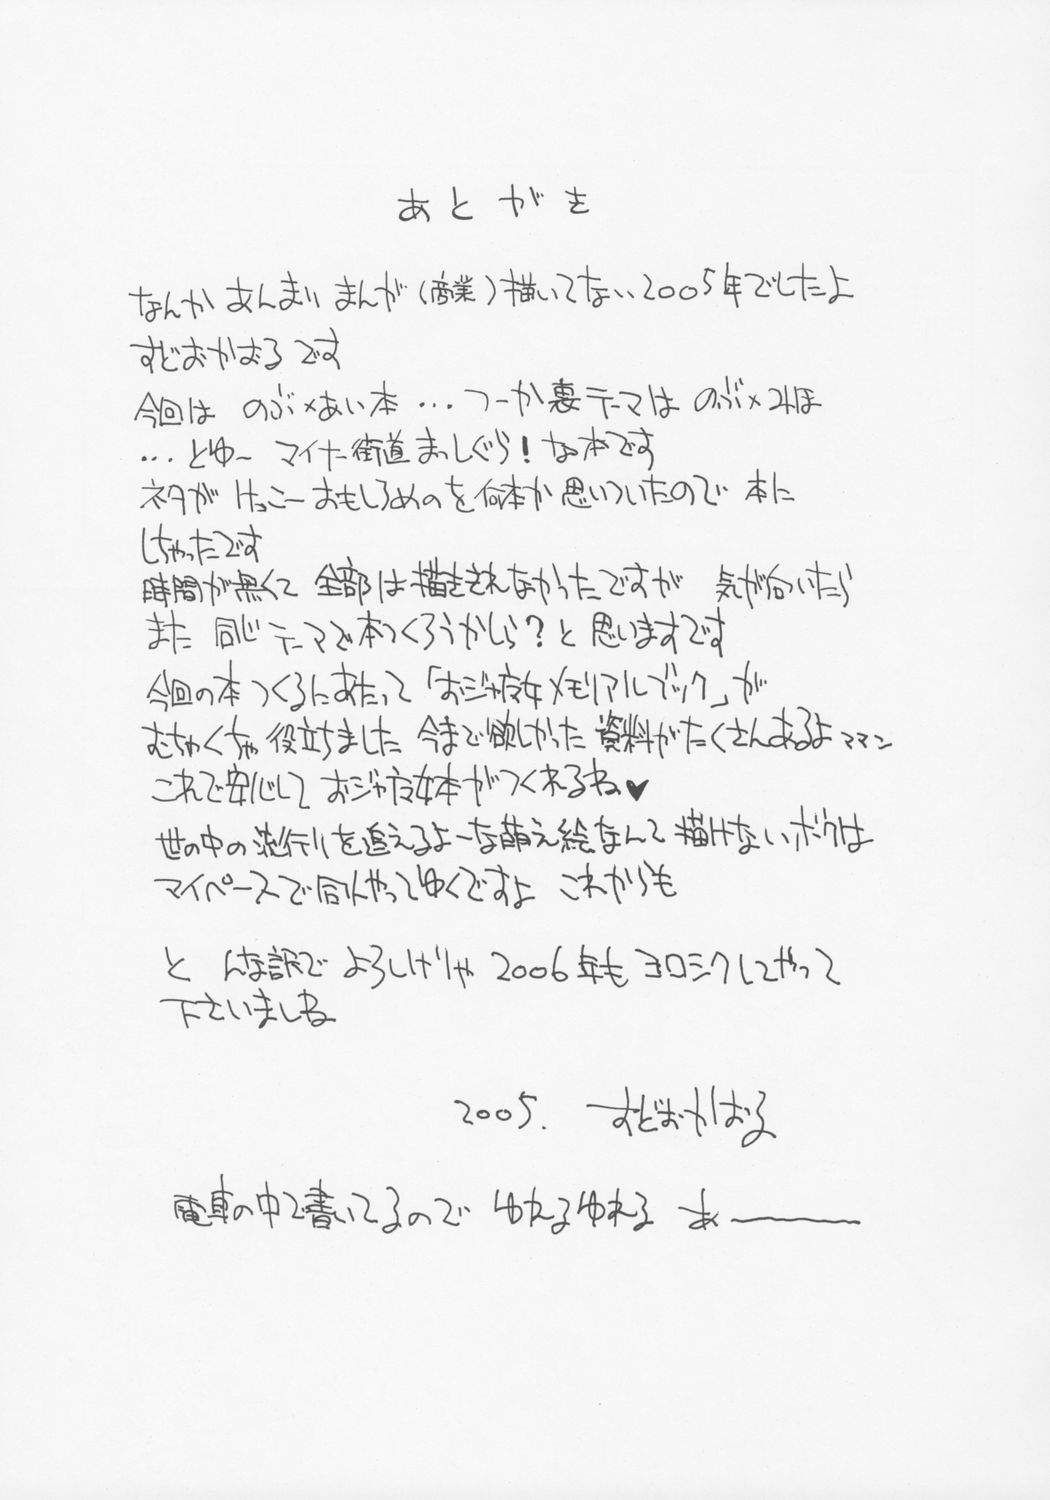 あとがき
なんか あんまり まんが(商業)描いてない2005年でしたよ
すどおかおるです
今回は のぶ×あい本 … つーか裏テーマは のぶ×みほ
…とゆ～ マイナー街道まっしぐら！な本です
ネタが けっこーおもしろめのを何本か思いついたので 本に
しちゃったです
時間が無くて 全部は描ききれなかったですが 気が向いたら
また 同じテーマで本つくろうかしら？と 思いますです
今回の本つくるにあたって「おジャ魔女メモリアルブック」が
むちゃくちゃ役立ちました 今まで欲しかった 資料がたくさんあるよママン
これで安心して おジャ魔女本がつくれるね♥
世の中の流行りを追えるよーな萌え絵なんて描けないボクは
マイペースで同人やってゆくですよ これからも
と んな訳で よろしければ 2006年も ヨロシクしてやって
下さいましね
2005. すどおかおる
電車の中で書いてるので ゆれるゆれる あ～